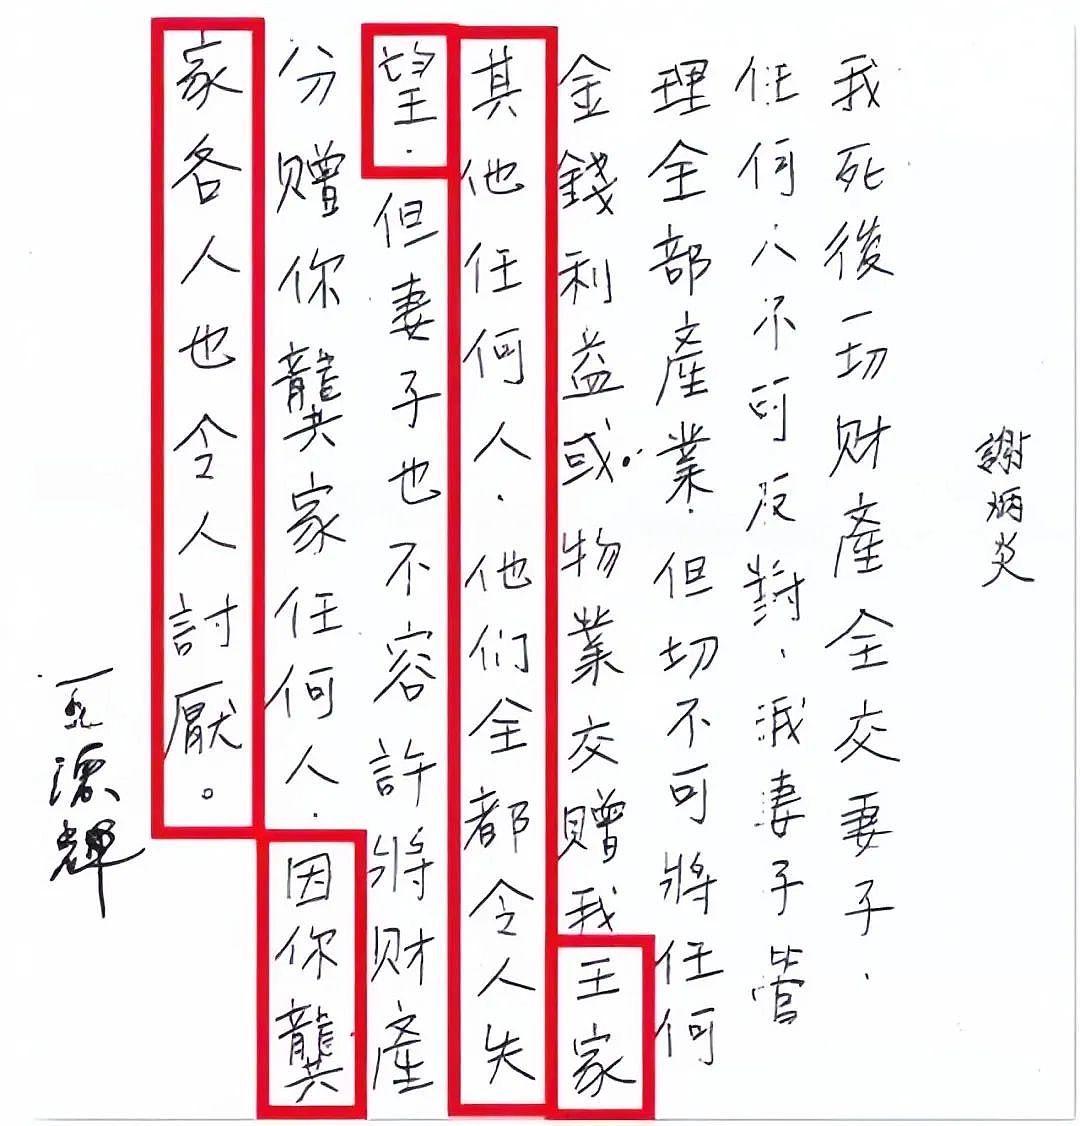 謝炳炎
我死後一切财產全交妻子.
任何人不可反對、我妻子管
理全部產業.但切不可將任何
金錢利益或.物業交赠我王家
其他任何人.他们全都令人失
望.但妻子也不容許將财產
分赠你龔家任何人.因你龔
家各人也令人討厭。
王德輝